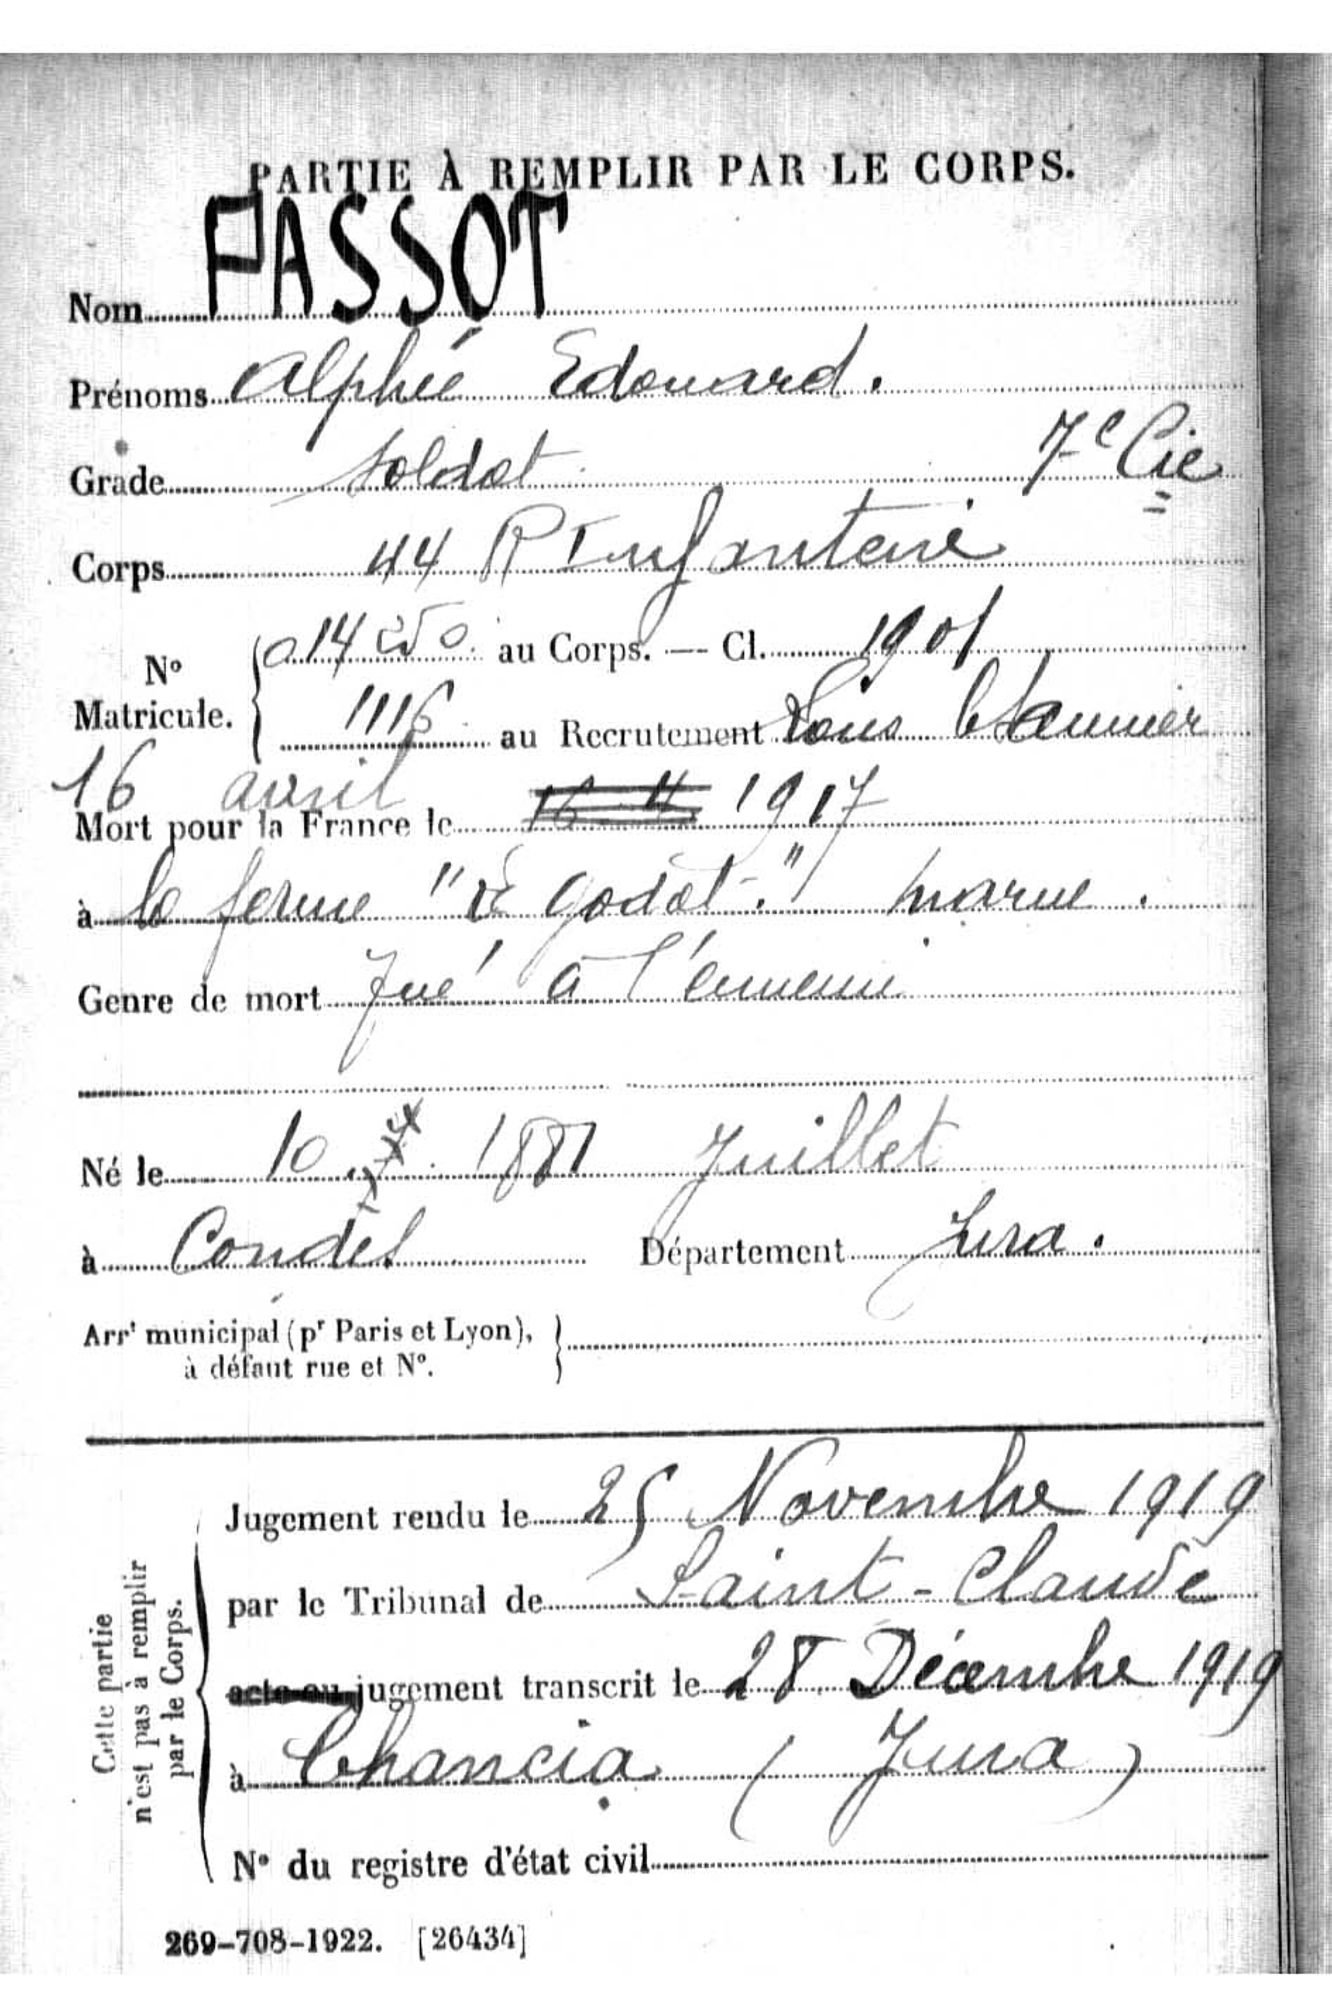 PARTIE À REMPLIR PAR LE CORPS.
Nom PASSOT
Prénoms Alphée Edouard.
Grade Soldat 7e Cie
Corps 44 R Infanterie
No Matricule. 014250 au Corps. — Cl. 1901
1116 au Recrutement Lons le Saunier
16 avril
Mort pour la France le 16 4 1917
à la ferme " Godat." Marne.
Genre de mort Tué à l'ennemi
Né le 10 1881 Juillet
à Condes Département Jura.
Arrt municipal (pr Paris et Lyon),
à défaut rue et No.
Cette partie
n'est pas à remplir
par le Corps.
Jugement rendu le 25 Novembre 1919
par le Tribunal de Saint-Claude
acte ou jugement transcrit le 28 Décembre 1919
à Chancia (Jura)
No du registre d'état civil
269-708-1922. [26434]